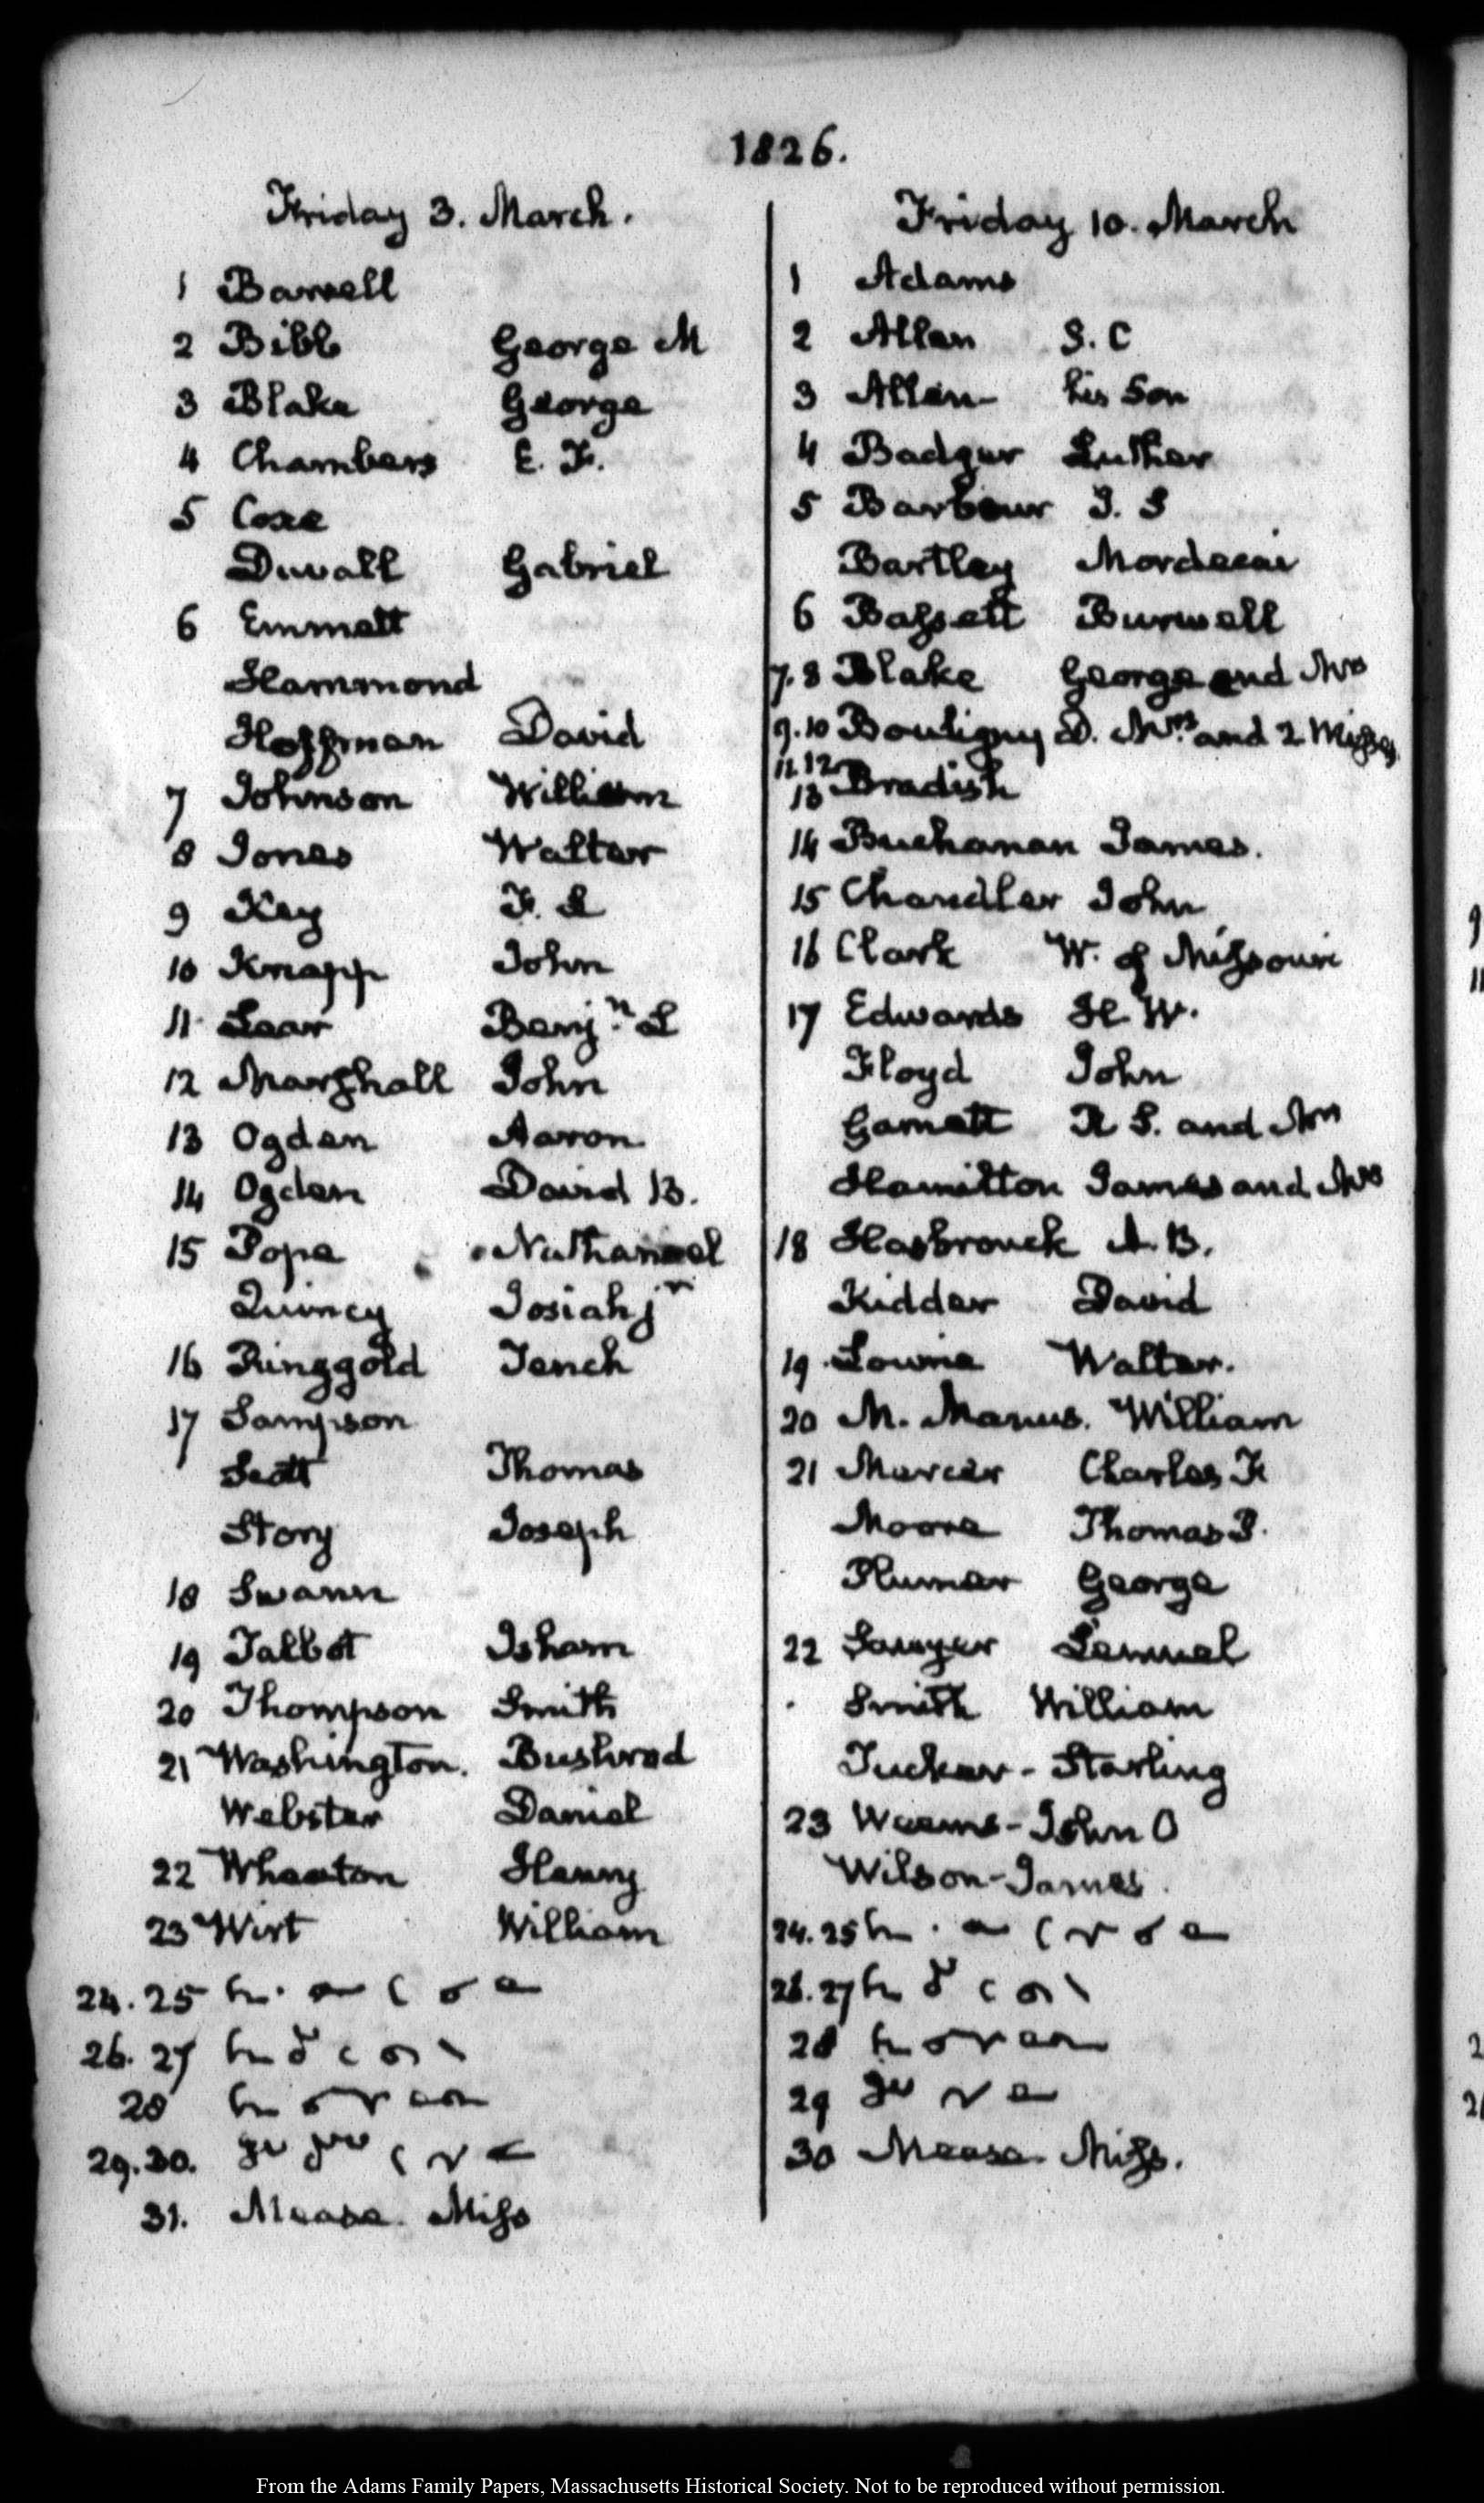 1826.
Friday 3. March.
1 Barrell
2 Bibb George M
3 Blake George
4 Chambers E. F.
5 Coxe
Duvall Gabriel
6 Emmett
Hammond
Hoffman David
7 Johnson William
8 Jones Walter
9 Key F. S
10 Knapp John
11. Lear Benjn. L
12 Marshall John
13 Ogden Aaron
14 Ogden David B.
15 Pope Nathaniel
Quincy Josiah jr
16 Ringgold Tench
17 Sampson
Scott Thomas
Story Joseph
18 Swann
19 Talbot Isham
20 Thompson Smith
21 Washington. Bushrod
Webster Daniel
22 Wheaton Henry
23 Wirt William
24. 25
26. 27
28
29. 30.
31. Mease Miss
Friday 10. March
1 Adams
2 Allen S. C
3 Allen his Son
4 Badger Luther
5 Barbour J. S
Bartley Mordecai
6 Bassett Burwell
7. 8 Blake George and Mrs
9. 10 Bouligny D. Mrs. and 2 Misses
11. 12
13 Bradish
14 Buchanan James.
15 Chandler John
16 Clark W. of Missouri
17 Edwards H W.
Floyd John
Garnett R S. and Mrs
Hamilton James and Mrs
18 Hasbrouck A. B.
Kidder David
19 Lowrie Walter.
20 M. Manus. William
21 Mercer Charles F
Moore Thomas P.
Plumer George
22 Sawyer Lemuel
Smith William
Tucker - Starling
23 Weems - John C
Wilson - James
24. 25
26. 27
28
29
30 Mease. Miss.
From the Adams Family Papers, Massachusetts Historical Society. Not to be reproduced without permission.